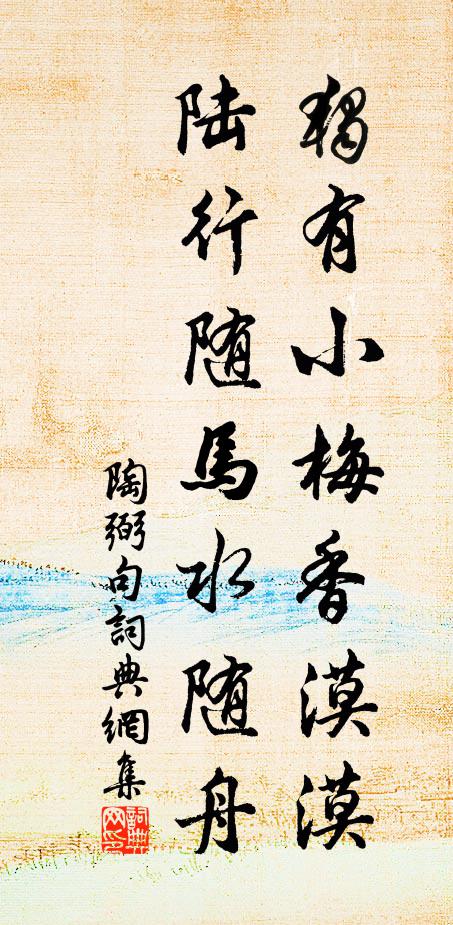 獨有小梅香漠漠
陆行随馬水随舟
陶弼句詞典網集
詞典网印